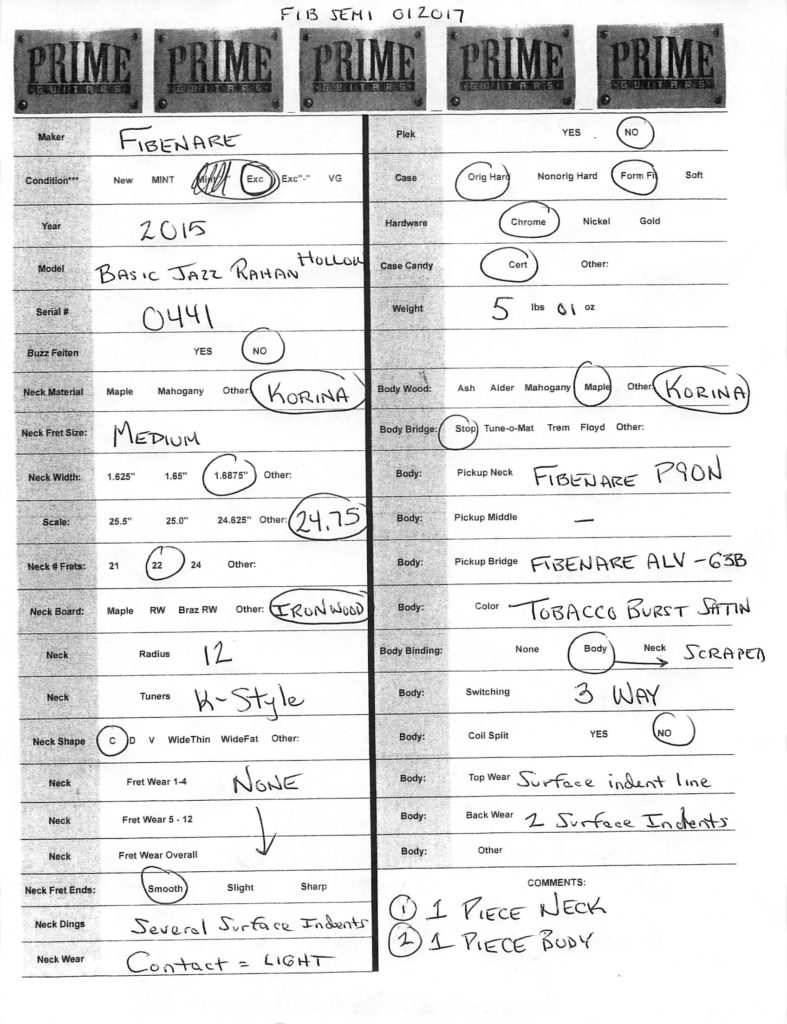 FIB SEMI 012017
PRIME GUITARS PRIME GUITARS PRIME GUITARS PRIME GUITARS PRIME GUITARS
Maker FIBENARE
Condition*** New MINT Exc Exc"-" VG
Year 2015
Model BASIC JAZZ RAHAN HOLLOW
Serial # 0441
Buzz Feiten YES NO
Neck Material Maple Mahogany Other KORINA
Neck Fret Size: MEDIUM
Neck Width: 1.625" 1.65" 1.6875" Other:
Scale: 25.5" 25.0" 24.625" Other: 24.75
Neck # Frets: 21 22 24 Other:
Neck Board: Maple RW Braz RW Other: IRONWOOD
Neck Radius 12
Neck Tuners K-Style
Neck Shape C D V WideThin WideFat Other:
Neck Fret Wear 1-4 NONE
Neck Fret Wear 5 - 12
Neck Fret Wear Overall
Neck Fret Ends: Smooth Slight Sharp
Neck Dings Several Surface Indents
Neck Wear Contact = LIGHT
Plek YES NO
Case Orig Hard Nonorig Hard Form Fi Soft
Hardware Chrome Nickel Gold
Case Candy Cert Other:
Weight 5 lbs 01 oz
Body Wood: Ash Alder Mahogany Maple Other KORINA
Body Bridge: Stop Tune-o-Mat Trem Floyd Other:
Body: Pickup Neck FIBENARE P90N
Body: Pickup Middle —
Body: Pickup Bridge FIBENARE ALV-63B
Body: Color TOBACCO BURST SATIN
Body Binding: None Body Neck SCRAPED
Body: Switching 3 WAY
Body: Coil Split YES NO
Body: Top Wear Surface indent line
Body: Back Wear 2 Surface Indents
Body: Other
COMMENTS:
1 1 PIECE NECK
2 1 PIECE BODY